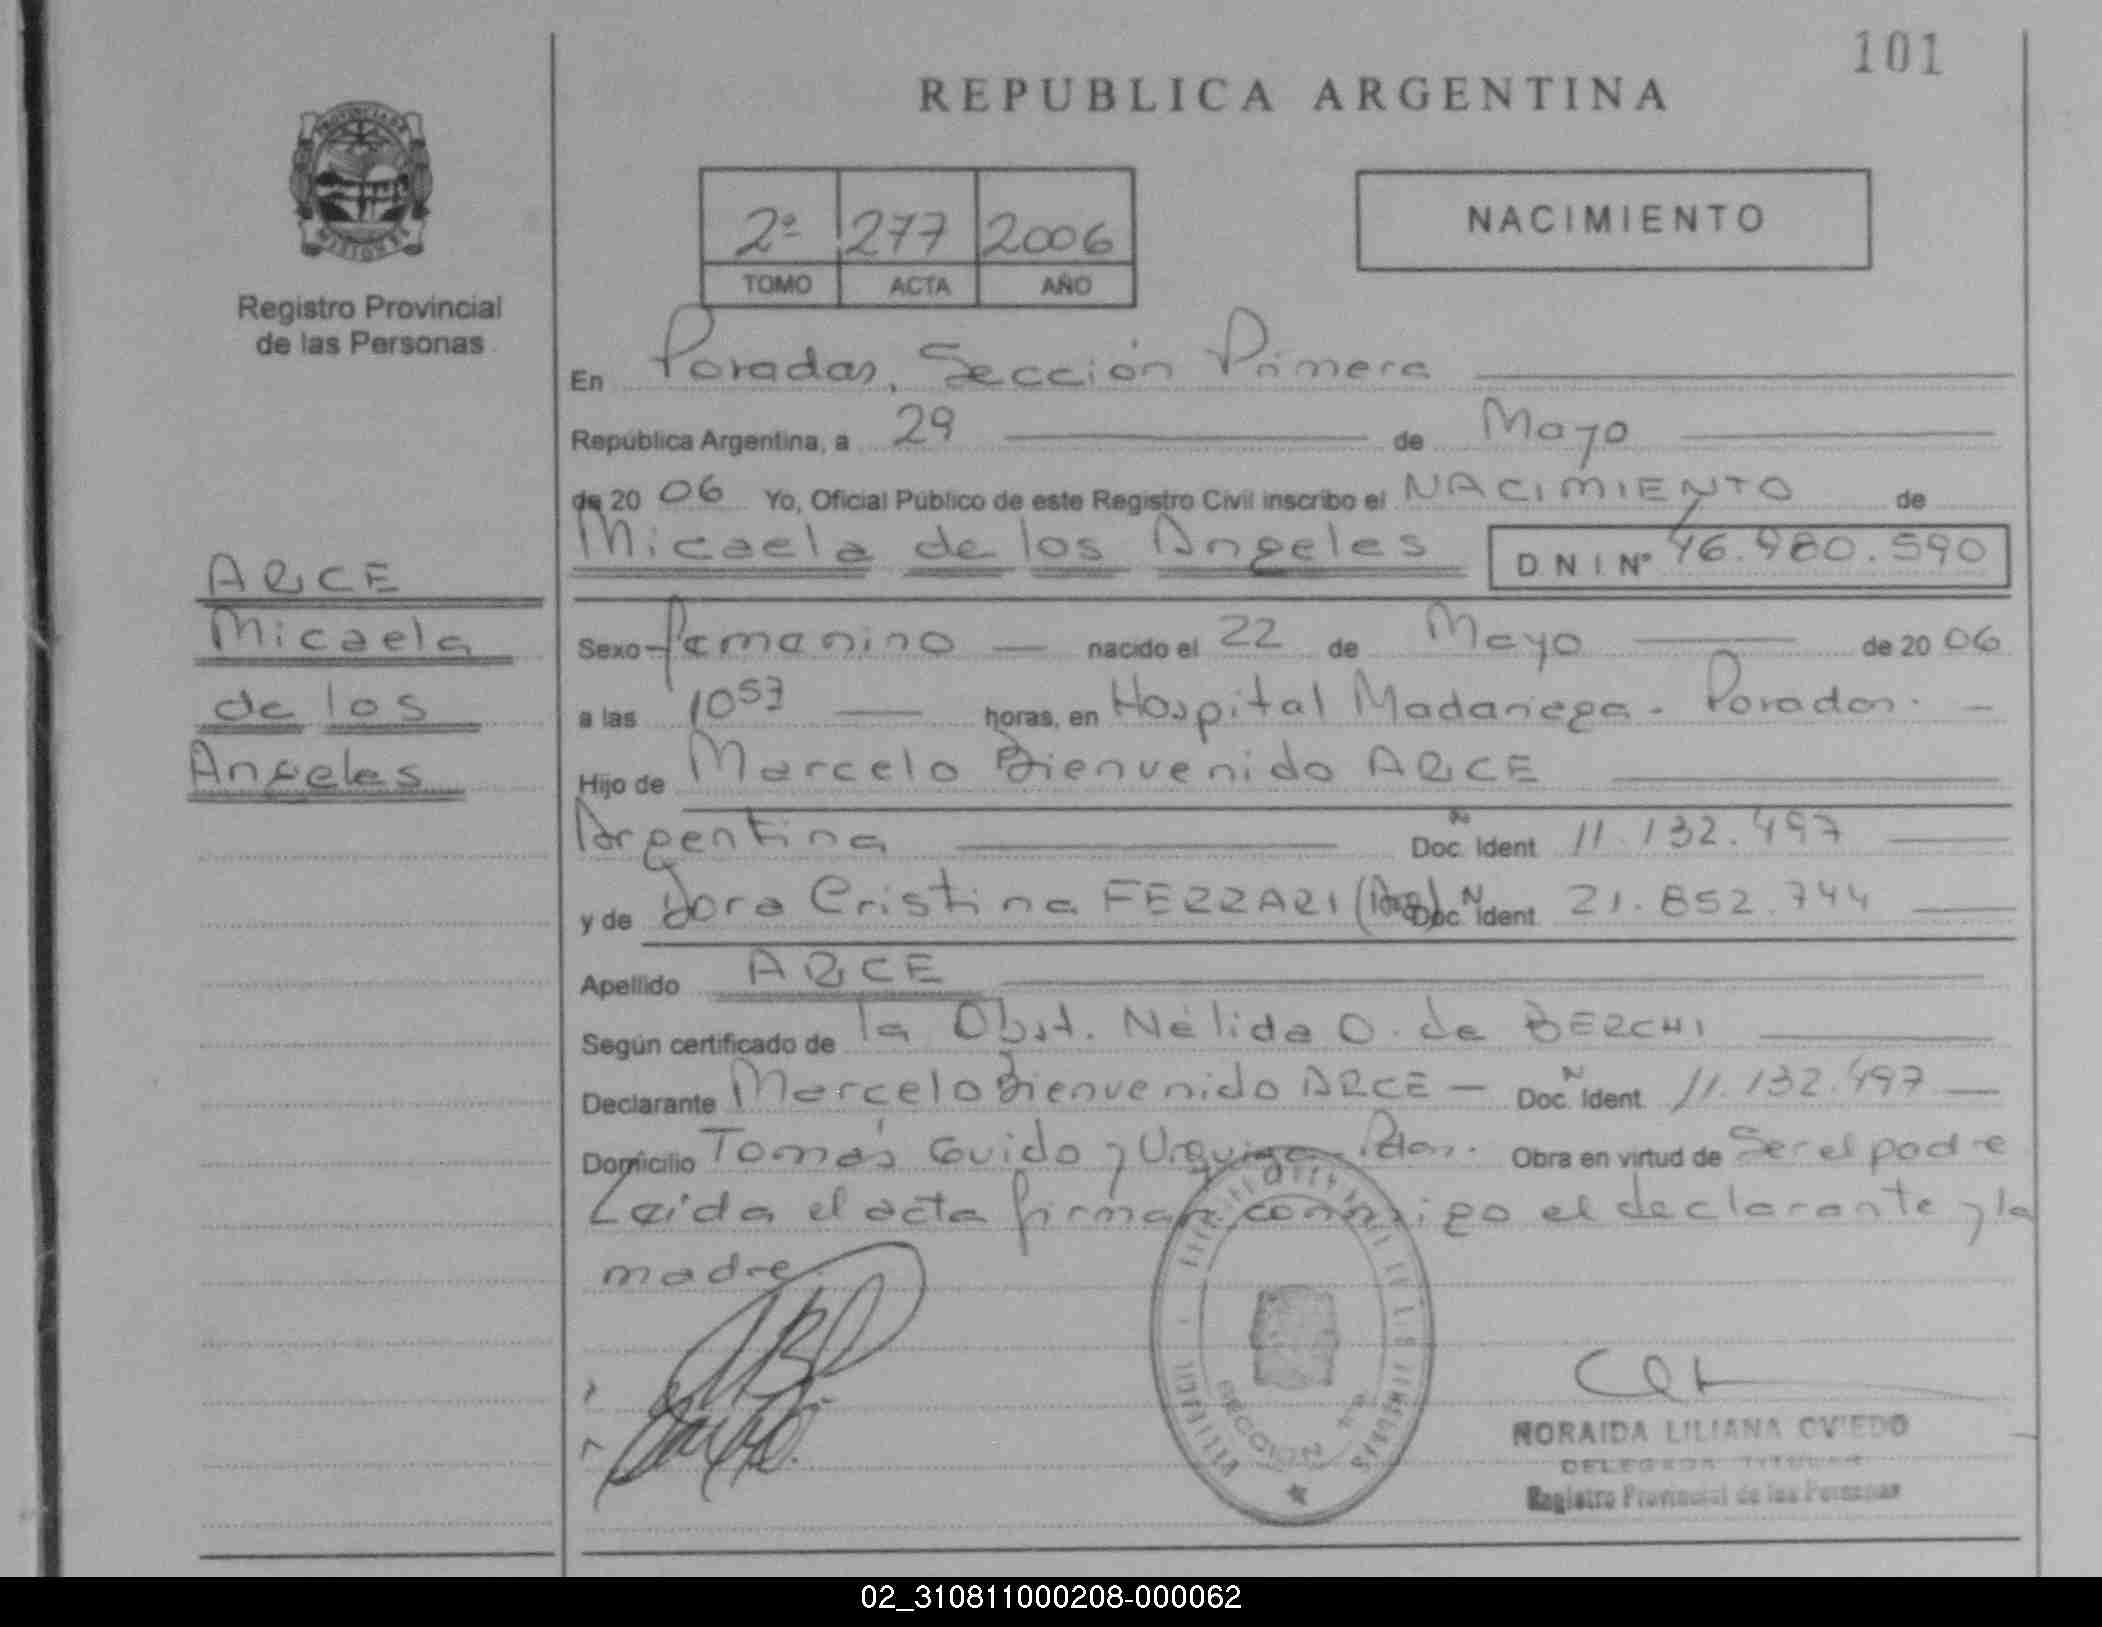 101
REPUBLICA ARGENTINA
2ª 277 2006
TOMO ACTA AÑO
NACIMIENTO
Registro Provincial
de las Personas
En Posadas, Sección Primera
República Argentina, a 29 de Mayo
de 20 06 Yo, Oficial Público de este Registro Civil inscribo el NACIMIENTO de
Micaela de los Angeles D.N.I. Nº 46.980.590
ARCE
Micaela
de los
Angeles
Sexo Femenino nacido el 22 de Mayo de 20 06
a las 10 57 horas, en Hospital Madariaga - Posadas.
Hijo de Marcelo Bienvenido ARCE
Argentina Doc. Ident 11.132.497
y de Dora Cristina FERRARI (Arg) Doc. Ident 21.852.744
Apellido ARCE
Según certificado de la Obst. Nélida O. de BERCHI
Declarante Marcelo Bienvenido ARCE - Doc. Ident. 11.132.497
Domicilio Tomás Guido y Urquiza. Pdas. Obra en virtud de Ser el padre
Leída el acta firman conmigo el declarante y la
madre.
SECCION
NORAIDA LILIANA OVIEDO
DELEGADA TITULAR
Registro Provincial de las Personas
02_310811000208-000062